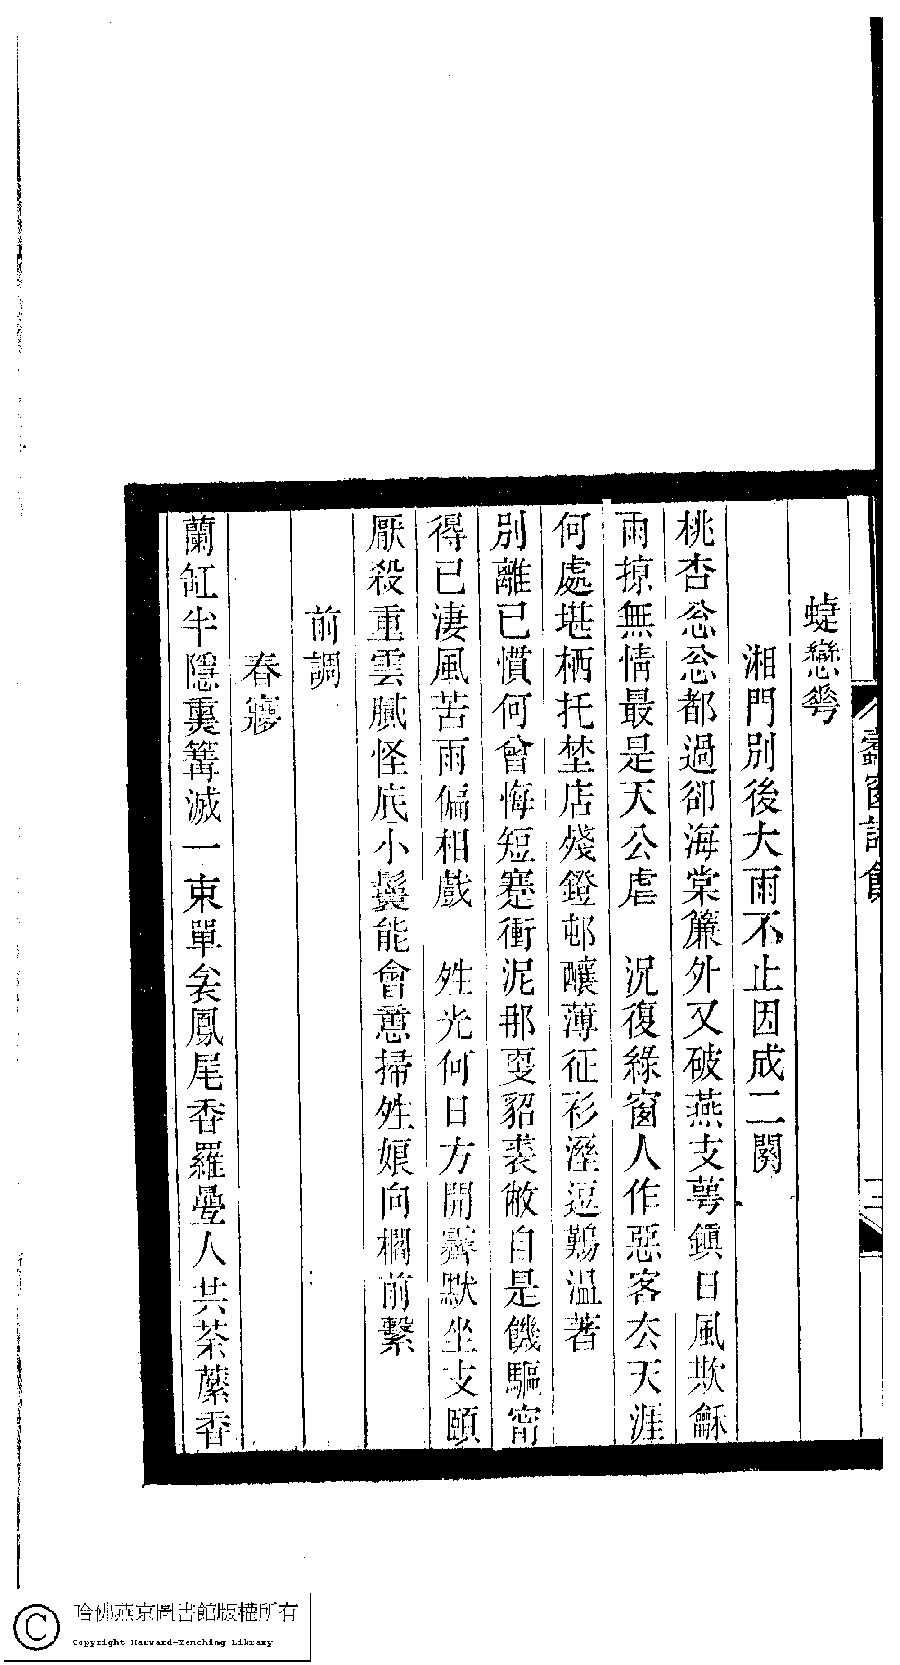 蜨戀蕚
湘門別後大雨不止因成二闋
桃杏忩忩都過卻海棠簾外又破燕支萼鎮日風欺龢
雨掠無情最是天公虐　況復綠窗人作惡客厺天涯
何處堪栖托埜店殘鐙邨釀薄征衫溼逗鷄溫著
別離已慣何曾悔短蹇衝泥那耍貂裘敝自是饑驅甯
得已淒風苦雨偏相戲　姓光何日方開霽默坐支頤
厭殺重雲膩怪底小鬟能會意掃姓娘向欄前繫
前調
春寢
蘭缸半隱熏篝滅一束單矣鳳尾香羅疊人共荼蘼香